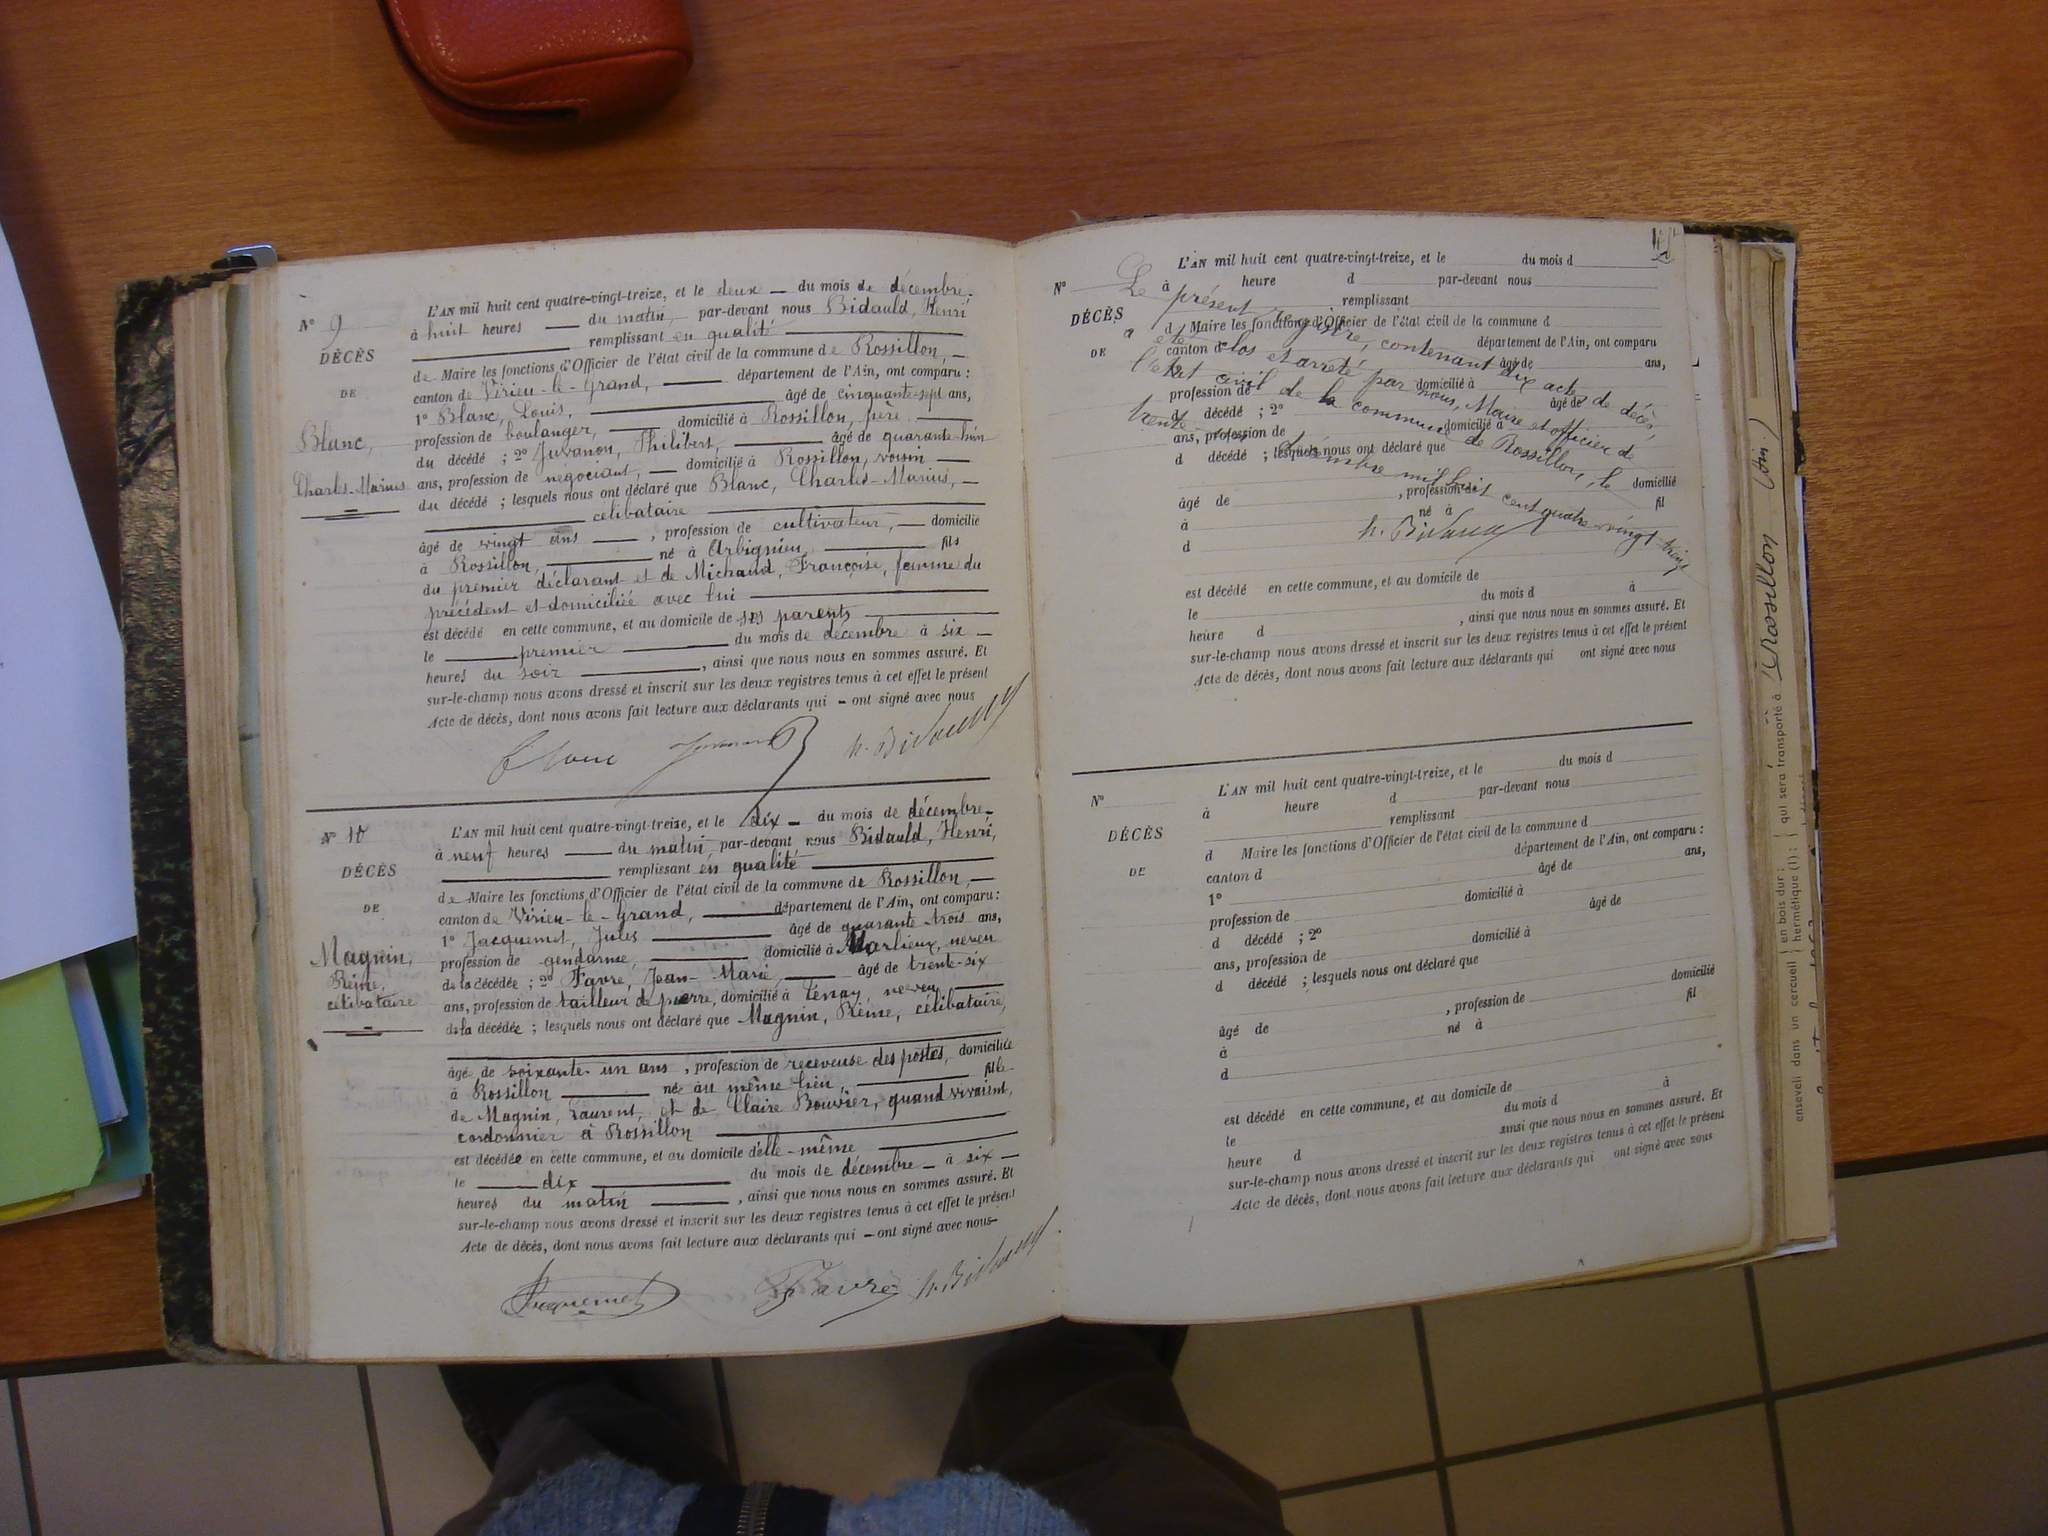 N° 9
DÉCÈS
DE
Blanc,
Charles-Marius
L'AN mil huit cent quatre-vingt-treize, et le deux — du mois de décembre
à huit heures — du matin, par-devant nous Bidauld, Henri
remplissant en qualité
de Maire les fonctions d'Officier de l'état civil de la commune de Rossillon, —
canton de Virieu-le-Grand, — département de l'Ain, ont comparu :
1° Blanc, Louis, — âgé de cinquante-sept ans,
profession de boulanger, — domicilié à Rossillon, père
du décédé ; 2° Juvanon, Philibert, — âgé de quarante-huit
ans, profession de négociant, — domicilié à Rossillon, voisin —
du décédé ; lesquels nous ont déclaré que Blanc, Charles-Marius, —
célibataire
âgé de vingt ans — , profession de cultivateur, — domicilié
à Rossillon, — né à Arbignieu — fils
du premier déclarant et de Michaud, Françoise, femme du
précédent et domiciliée avec lui —
est décédé en cette commune, et au domicile de ses parents
le — premier — du mois de décembre à six —
heures du soir — , ainsi que nous nous en sommes assuré. Et
sur-le-champ nous avons dressé et inscrit sur les deux registres tenus à cet effet le présent
Acte de décès, dont nous avons fait lecture aux déclarants qui — ont signé avec nous
Blanc Juvanon h. Bidauld
N° 10
DÉCÈS
DE
Magnin,
Reine,
célibataire
L'AN mil huit cent quatre-vingt-treize, et le dix — du mois de décembre —
à neuf heures — du matin par-devant nous Bidauld, Henri,
remplissant en qualité
de Maire les fonctions d'Officier de l'état civil de la commune de Rossillon, —
canton de Virieu-le-Grand, — département de l'Ain, ont comparu :
1° Jacquemet, Jules — âgé de quarante trois ans,
profession de gendarme, — domicilié à Marlieux, neveu
de la décédée ; 2° Favre, Jean-Marie, — âgé de trente-six
ans, profession de tailleur de pierre, domicilié à Tenay, neveu
de la décédée ; lesquels nous ont déclaré que Magnin, Reine, célibataire,
âgé de soixante-un ans , profession de receveuse des postes, domiciliée
à Rossillon — né au même lieu, — fille
de Magnin, Laurent, et de Claire Bouvier, quand vivaient,
cordonnier à Rossillon
est décédée en cette commune, et au domicile d'elle-même
le — dix — du mois de décembre — à six —
heures du matin — , ainsi que nous nous en sommes assuré. Et
sur-le-champ nous avons dressé et inscrit sur les deux registres tenus à cet effet le présent
Acte de décès, dont nous avons fait lecture aux déclarants qui — ont signé avec nous
Jacquemet Favre h. Bidauld
N°
DÉCÈS
DE
L'AN mil huit cent quatre-vingt-treize, et le du mois d
à heure d par-devant nous
remplissant
d Maire les fonctions d'Officier de l'état civil de la commune d
canton d département de l'Ain, ont comparu
1° âgé de ans,
profession de domicilié à
d décédé ; 2° âgé de
ans, profession de domicilié à
d décédé ; lesquels nous ont déclaré que
âgé de , profession de domicilié
à né à fil
d
Le présent registre, contenant dix actes de décès,
a été clos et arrêté par nous, Maire et officier de
l'état civil de la commune de Rossillon, le
trente décembre mil huit cent quatre vingt treize
h. Bidauld
est décédé en cette commune, et au domicile de
le du mois d à
heure d , ainsi que nous nous en sommes assuré. Et
sur-le-champ nous avons dressé et inscrit sur les deux registres tenus à cet effet le présent
Acte de décès, dont nous avons fait lecture aux déclarants qui ont signé avec nous
N°
DÉCÈS
DE
L'AN mil huit cent quatre-vingt-treize, et le du mois d
à heure d par-devant nous
remplissant
d Maire les fonctions d'Officier de l'état civil de la commune d
canton d département de l'Ain, ont comparu :
1° âgé de ans,
profession de domicilié à
d décédé ; 2° âgé de
ans, profession de domicilié à
d décédé ; lesquels nous ont déclaré que
âgé de , profession de domicilié
à né à fil
d
est décédé en cette commune, et au domicile de
le du mois d à
heure d ainsi que nous nous en sommes assuré. Et
sur-le-champ nous avons dressé et inscrit sur les deux registres tenus à cet effet le présent
Acte de décès, dont nous avons fait lecture aux déclarants qui ont signé avec nous
enseveli dans un cercueil en bois dur ; hermétique (1) ; qui sera transporté à Rossillon (Ain)